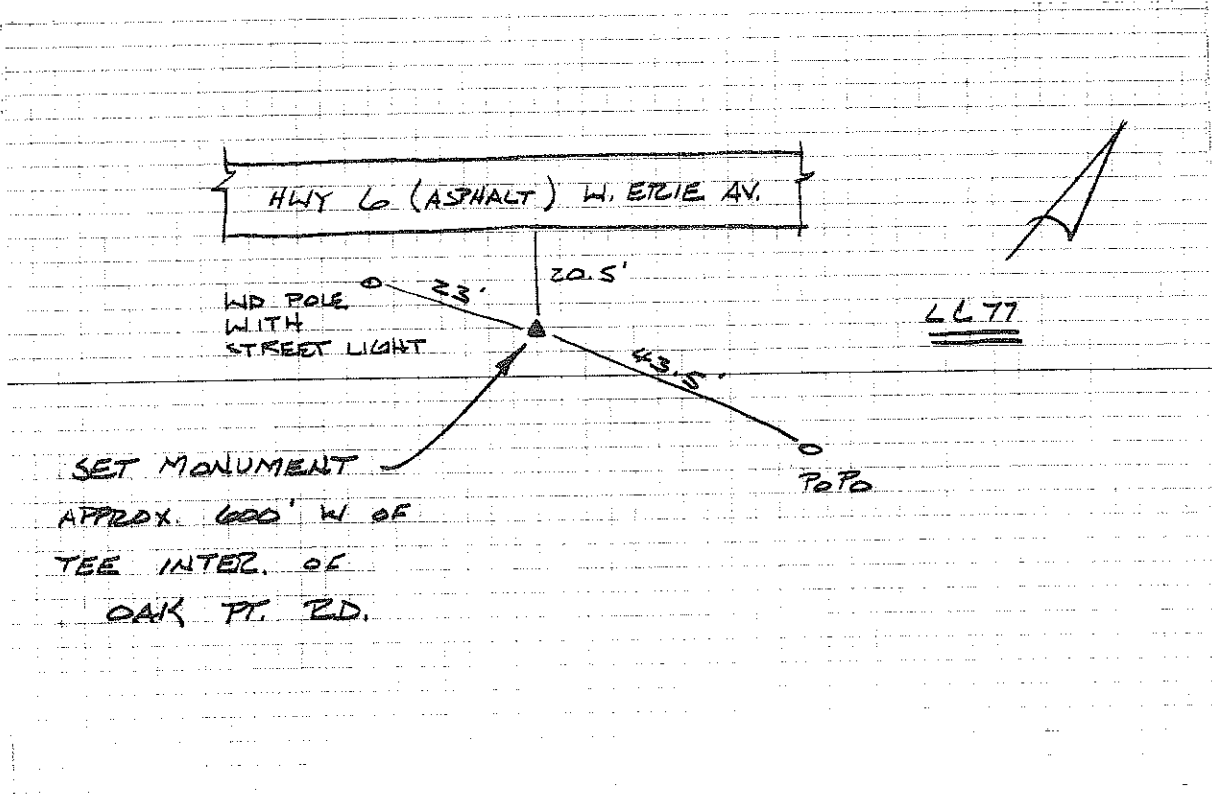 HWY 6 (ASPHALT) W. ERIE AV.
20.5'
23'
WD POLE
WITH
STREET LIGHT
LC77
43.5'
SET MONUMENT
APPROX. 600' W OF
TEE INTER. OF
OAK PT. RD.
PoPo